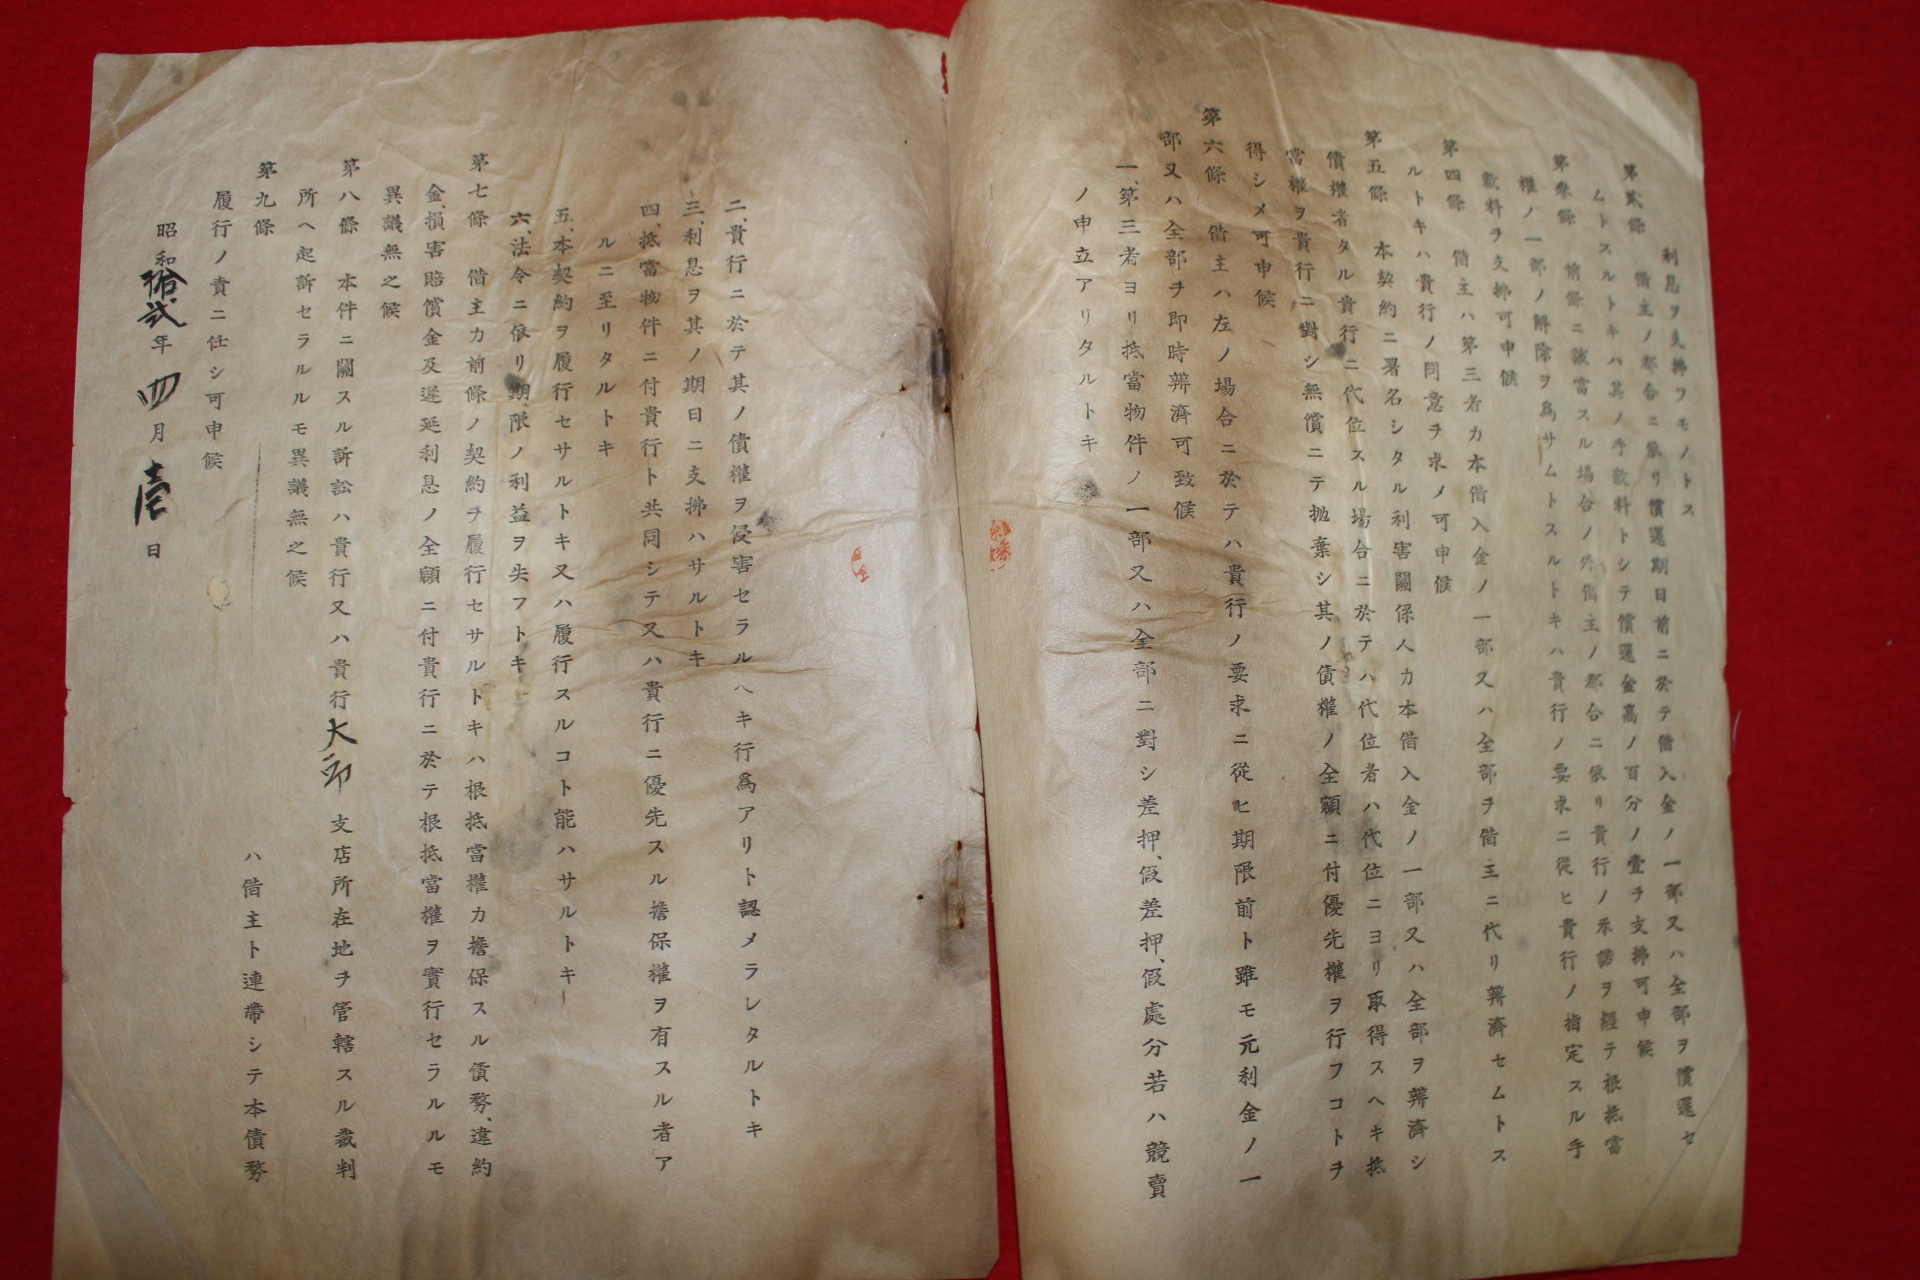 利息ヲ支拂フモノトス
第貳條　借主ノ都合ニ依リ償還期日前ニ於テ借入金ノ一部又ハ全部ヲ償還セ
ムトスルトキハ其ノ手數料トシテ償還金高ノ百分ノ壹ヲ支拂可申候
第參條　前條ニ該當スル場合ノ外借主ノ都合ニ依リ貴行ノ承諾ヲ經テ根抵當
權ノ一部ノ解除ヲ爲サムトスルトキハ貴行ノ要求ニ從ヒ貴行ノ指定スル手
數料ヲ支拂可申候
第四條　借主ハ第三者カ本借入金ノ一部又ハ全部ヲ借主ニ代リ辨濟セムトス
ルトキハ貴行ノ同意ヲ求メ可申候
第五條　本契約ニ署名シタル利害關係人カ本借入金ノ一部又ハ全部ヲ辨濟シ
債權者タル貴行ニ代位スル場合ニ於テハ代位者ハ代位ニヨリ取得スヘキ抵
當權ヲ貴行ニ對シ無償ニテ抛棄シ其ノ債權ノ全額ニ付優先權ヲ行フコトヲ
得シメ可申候
第六條　借主ハ左ノ場合ニ於テハ貴行ノ要求ニ從ヒ期限前ト雖モ元利金ノ一
部又ハ全部ヲ即時辨濟可致候
一、第三者ヨリ抵當物件ノ一部又ハ全部ニ對シ差押、假差押、假處分若ハ競賣
ノ申立アリタルトキ
二、貴行ニ於テ其ノ債權ヲ侵害セラルヘキ行爲アリト認メラレタルトキ
三、利息ヲ其ノ期日ニ支拂ハサルトキ
四、抵當物件ニ付貴行ト共同シテ又ハ貴行ニ優先スル擔保權ヲ有スル者ア
ルニ至リタルトキ
五、本契約ヲ履行セサルトキ又ハ履行スルコト能ハサルトキ
六、法令ニ依リ期限ノ利益ヲ失フトキ
第七條　借主カ前條ノ契約ヲ履行セサルトキハ根抵當權カ擔保スル債務、違約
金、損害賠償金及遲延利息ノ全額ニ付貴行ニ於テ根抵當權ヲ實行セラルルモ
異議無之候
第八條　本件ニ關スル訴訟ハ貴行又ハ貴行大邱支店所在地ヲ管轄スル裁判
所ヘ起訴セラルルモ異議無之候
第九條　ハ借主ト連帶シテ本債務
履行ノ責ニ任シ可申候
昭和拾貳年四月壹日